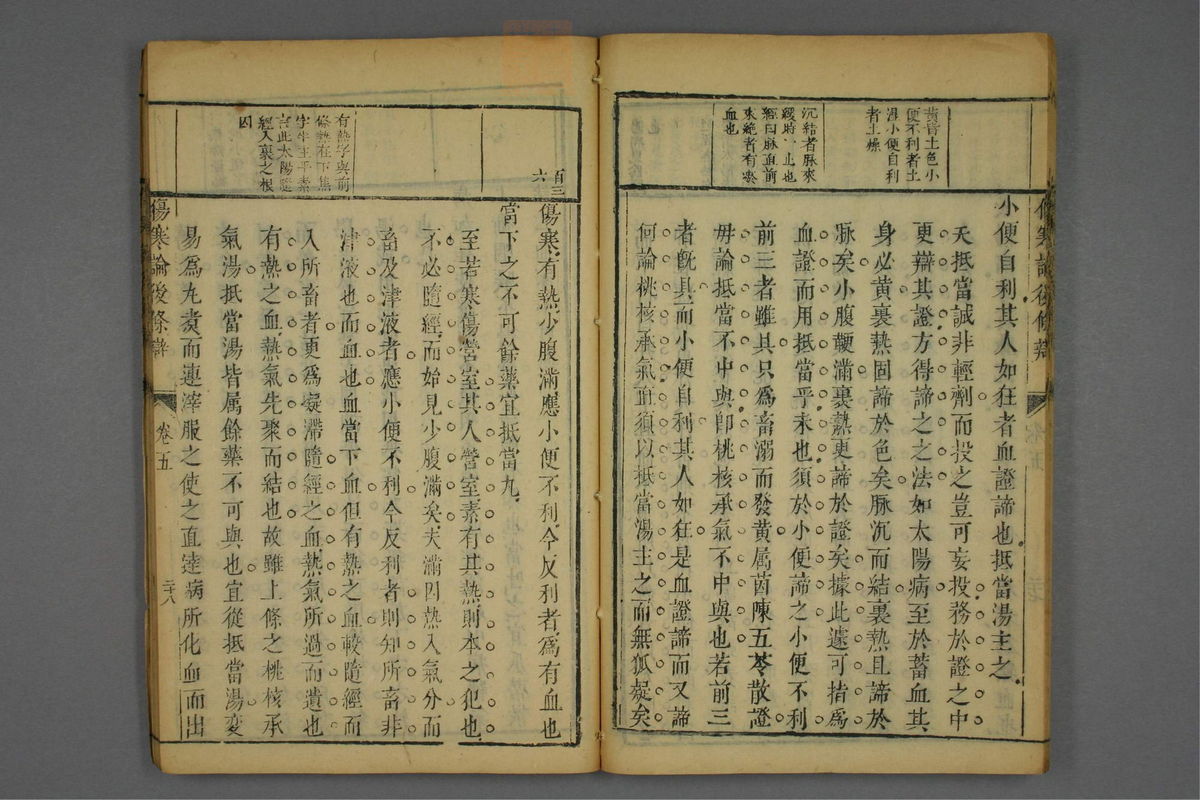 黃者土色小
便不利者土
濕小便自利
者土燥
沉結者脉來
緩時一止也
經曰脉血前
來絕者有瘀
血也
小便自利其人如狂者血證諦也抵當湯主之
夭抵當誠非輕劑而投之豈可妄投務於證之中
更辯其證方得諦之之法如太陽病至於蓄血其
身必黄裏熱固諦於色矣脉沉而結裏熱且諦於
脉矣小腹鞕滿裏熱更諦於證矣據此遽可指爲
血證而用抵當乎未也須於小便諦之小便不利
前三者雖具只爲畜溺而發黄属茵陳五苓散證
毋論抵當不中與卽桃核承氣不中與也若前三
者旣具而小便自利其人如狂是血證諦而又諦
何論桃核承氣直須以抵當湯主之而無狐疑矣
百三
六
有熱字與前
條熱在下焦
字生主乎素
言此太陽隨
經入裏之根
因
傷寒有熱少腹滿應小便不利今反利者爲有血也
當下之不可餘藥宜抵當丸
至若寒傷營室其人營室素有其熱則本之犯也
不必隨經而始見少腹滿矣夫滿因熱入氣分而
畜及津液者應小便不利今反利者則知所畜非
津液也而血也血當下血但有熱之血較隨經而
入所畜者更爲凝滯隨經之血熱氣所過而遺也
有熱之血熱氣先聚而結也故雖上條之桃核承
氣湯抵當湯皆属餘藥不可與也宜從抵當湯變
易爲丸煑而連滓服之使之直達病所化血而出
傷寒論後條辯
卷五
二十八